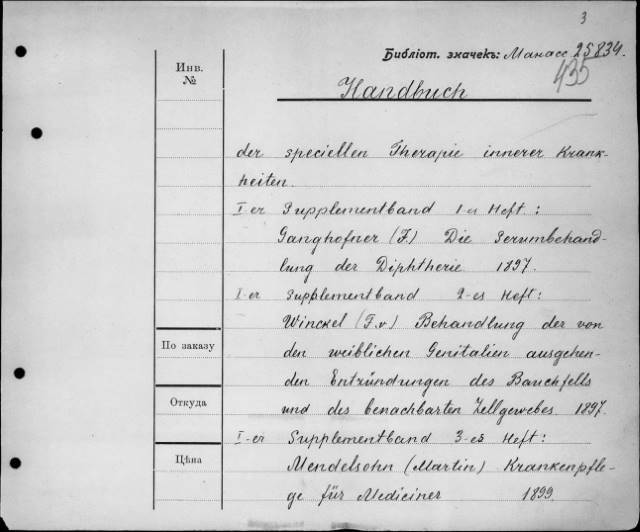 3
Библіот. значекъ: Манасс 25834.
435
Инв.
№
Handbuch
der speciellen Therapie innerer Krank-
heiten.
I-er Supplementband 1-es Heft:
Ganghofner (F.) Die Serumbehand-
lung der Diphtherie 1897.
I-er Supplementband 2-es Heft:
Winckel (F.v.) Behandlung der von
По заказу
den weiblichen Genitalien ausgehen-
den Entzündungen des Bauchfells
Откуда
und des benachbarten Zellgewebes. 1897.
I-er Supplementband 3-es Heft:
Цѣна
Mendelsohn (Martin) Krankenpfle-
ge für Mediciner 1899